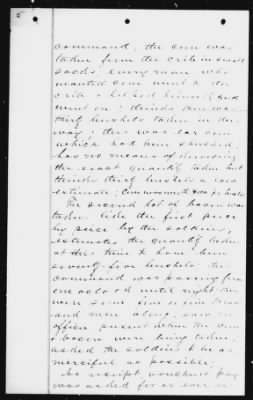 5
command, the corn was
taken from the crib in small
sacks; every man who
wanted corn went to the
crib & helped himself and
went on; thinks there was
thirty bushels taken in this
way; this was ear corn
which had been shucked;
has no means of knowing
the exact quantity taken but
thinks thirty bushels a fair
estimate; Corn was worth
The second lot of bacon was
taken like the first piece
by piece by the soldiers,
estimates the quantity taken
at this time to have been
seventy-five the
command was passing from
one o'clock until night there
were some
and men along; saw no
officer present when the corn
& bacon were being taken;
asked the soldiers to be as
merciful as possible;
No receipt voucher or pay
was asked for or